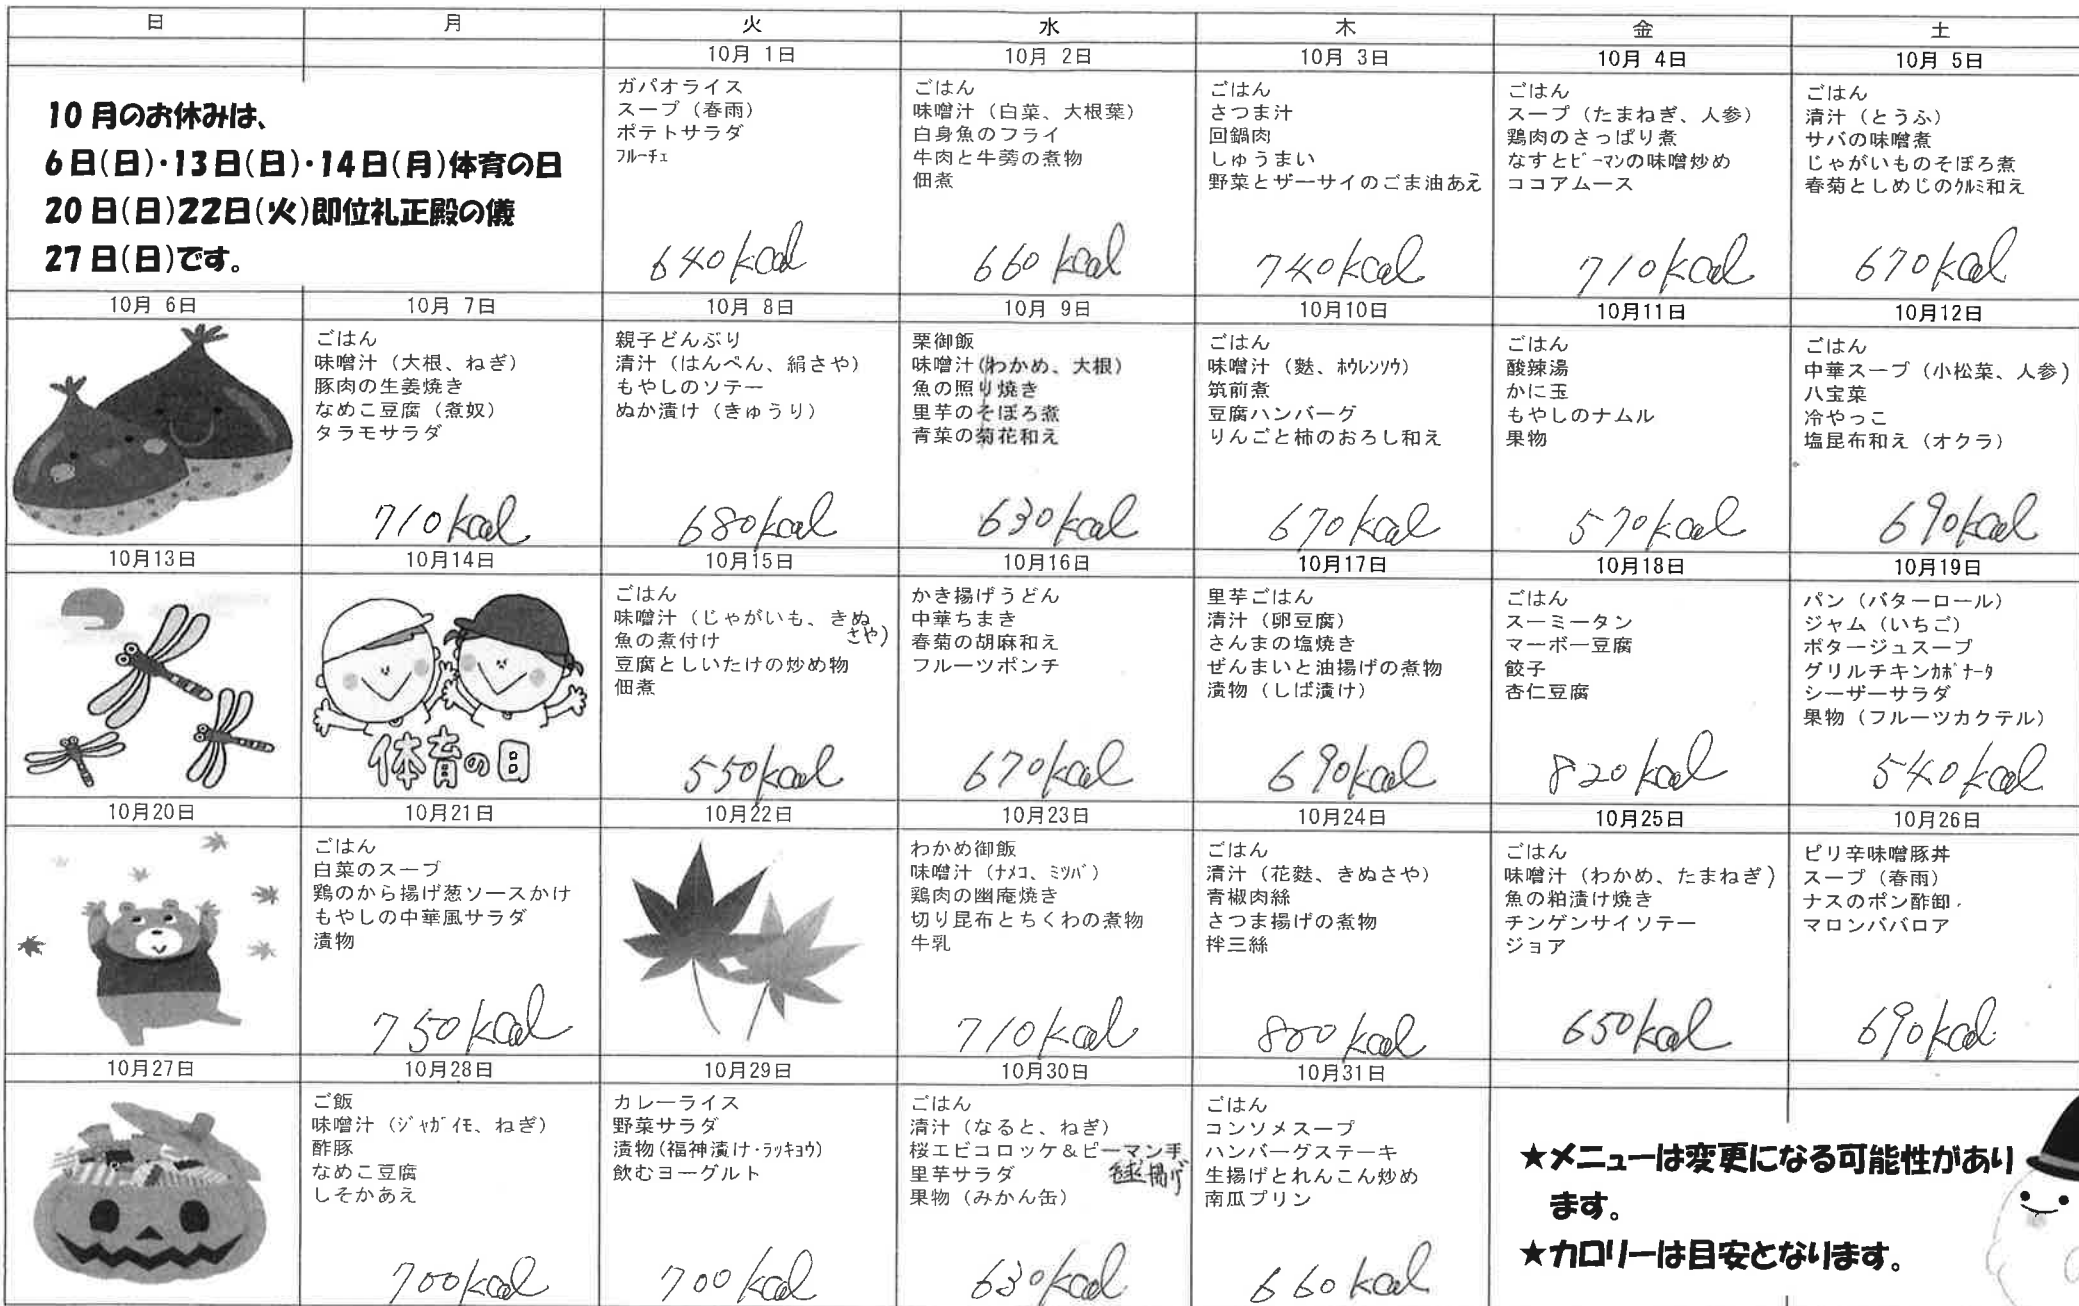 日 月 火 水 木 金 土
10月 1日 10月 2日 10月 3日 10月 4日 10月 5日
10月のお休みは、
6日(日)・13日(日)・14日(月)体育の日
20日(日)22日(火)即位礼正殿の儀
27日(日)です。
ガパオライス
スープ（春雨）
ポテトサラダ
ﾌﾙｰﾁｪ
640kcal
ごはん
味噌汁（白菜、大根葉）
白身魚のフライ
牛肉と牛蒡の煮物
佃煮
660kcal
ごはん
さつま汁
回鍋肉
しゅうまい
野菜とザーサイのごま油あえ
740kcal
ごはん
スープ（たまねぎ、人参）
鶏肉のさっぱり煮
なすとﾋﾟｰﾏﾝの味噌炒め
ココアムース
710kcal
ごはん
清汁（とうふ）
サバの味噌煮
じゃがいものそぼろ煮
春菊としめじのｸﾙﾐ和え
670kcal
10月 6日 10月 7日 10月 8日 10月 9日 10月10日 10月11日 10月12日
ごはん
味噌汁（大根、ねぎ）
豚肉の生姜焼き
なめこ豆腐（煮奴）
タラモサラダ
710kcal
親子どんぶり
清汁（はんぺん、絹さや）
もやしのソテー
ぬか漬け（きゅうり）
680kcal
栗御飯
味噌汁(わかめ、大根）
魚の照り焼き
里芋のそぼろ煮
青菜の菊花和え
630kcal
ごはん
味噌汁（麩、ﾎｳﾚﾝｿｳ）
筑前煮
豆腐ハンバーグ
りんごと柿のおろし和え
670kcal
ごはん
酸辣湯
かに玉
もやしのナムル
果物
570kcal
ごはん
中華スープ（小松菜、人参）
八宝菜
冷やっこ
塩昆布和え（オクラ）
690kcal
10月13日 10月14日 10月15日 10月16日 10月17日 10月18日 10月19日
体育の日
ごはん
味噌汁（じゃがいも、きぬ
さや）
魚の煮付け
豆腐としいたけの炒め物
佃煮
550kcal
かき揚げうどん
中華ちまき
春菊の胡麻和え
フルーツポンチ
670kcal
里芋ごはん
清汁（卵豆腐）
さんまの塩焼き
ぜんまいと油揚げの煮物
漬物（しば漬け）
690kcal
ごはん
スーミータン
マーボー豆腐
餃子
杏仁豆腐
820kcal
パン（バターロール）
ジャム（いちご）
ポタージュスープ
グリルチキンｶﾎﾟﾅｰﾀ
シーザーサラダ
果物（フルーツカクテル）
540kcal
10月20日 10月21日 10月22日 10月23日 10月24日 10月25日 10月26日
ごはん
白菜のスープ
鶏のから揚げ葱ソースかけ
もやしの中華風サラダ
漬物
750kcal
わかめ御飯
味噌汁（ﾅﾒｺ、ﾐﾂﾊﾞ）
鶏肉の幽庵焼き
切り昆布とちくわの煮物
牛乳
710kcal
ごはん
清汁（花麩、きぬさや）
青椒肉絲
さつま揚げの煮物
拌三絲
800kcal
ごはん
味噌汁（わかめ、たまねぎ）
魚の粕漬け焼き
チンゲンサイソテー
ジョア
650kcal
ピリ辛味噌豚丼
スープ（春雨）
ナスのポン酢卸
マロンババロア
690kcal
10月27日 10月28日 10月29日 10月30日 10月31日
ご飯
味噌汁（ｼﾞｬｶﾞｲﾓ、ねぎ）
酢豚
なめこ豆腐
しそかあえ
700kcal
カレーライス
野菜サラダ
漬物(福神漬け･ﾗｯｷｮｳ)
飲むヨーグルト
700kcal
ごはん
清汁（なると、ねぎ）
桜エビコロッケ＆ピーマン手
毬揚げ
里芋サラダ
果物（みかん缶）
630kcal
ごはん
コンソメスープ
ハンバーグステーキ
生揚げとれんこん炒め
南瓜プリン
660kcal
★メニューは変更になる可能性があり
ます。
★カロリーは目安となります。